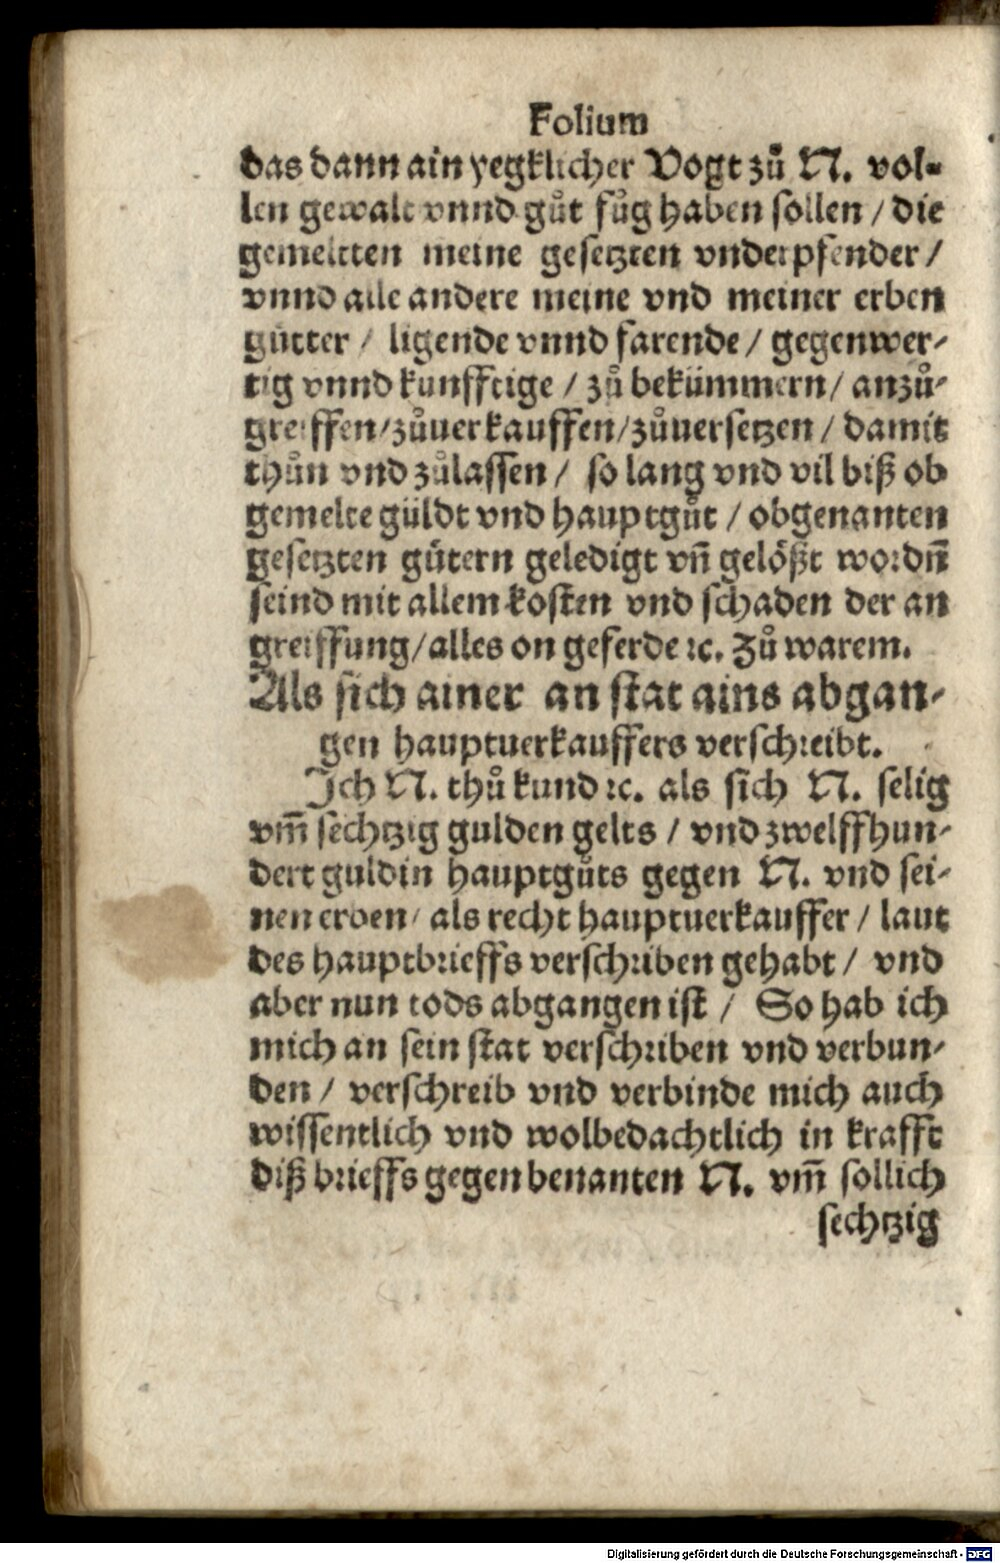 Folium
das dann ain yegklicher Vogt zů N. vol-
len gewalt vnnd gůt fůg haben sollen / die
gemeltten meine gesetzten vnderpfender /
vnnd alle andere meine vnd meiner erben
gütter / ligende vnnd farende / gegenwer-
tig vnnd kunfftige / zů bekümmern / anzů-
greiffen / zůuerkauffen / zůuersetzen / damit
thůn vnd zůlassen / so lang vnd vil biß ob
gemelte güldt vnd hauptgůt / obgenanten
gesetzten gütern geledigt vn̄ gelößt wordn̄
seind mit allem kosten vnd schaden der an
greiffung / alles on geferde ꝛc. Zů warem.
Als sich ainer an stat ains abgan-
gen hauptuerkauffers verschreibt.
Ich N. thů kund ꝛc. als sich N. selig
vm̄ sechtzig gulden gelts / vnd zwelffhun-
dert guldin hauptgůts gegen N. vnd sei-
nen erben / als recht hauptuerkauffer / laut
des hauptbrieffs verschriben gehabt / vnd
aber nun tods abgangen ist / So hab ich
mich an sein stat verschriben vnd verbun-
den / verschreib vnd verbinde mich auch
wissentlich vnd wolbedachtlich in krafft
diß brieffs gegen benanten N. vm̄ sollich
sechtzig
Digitalisierung gefördert durch die Deutsche Forschungsgemeinschaft - DFG